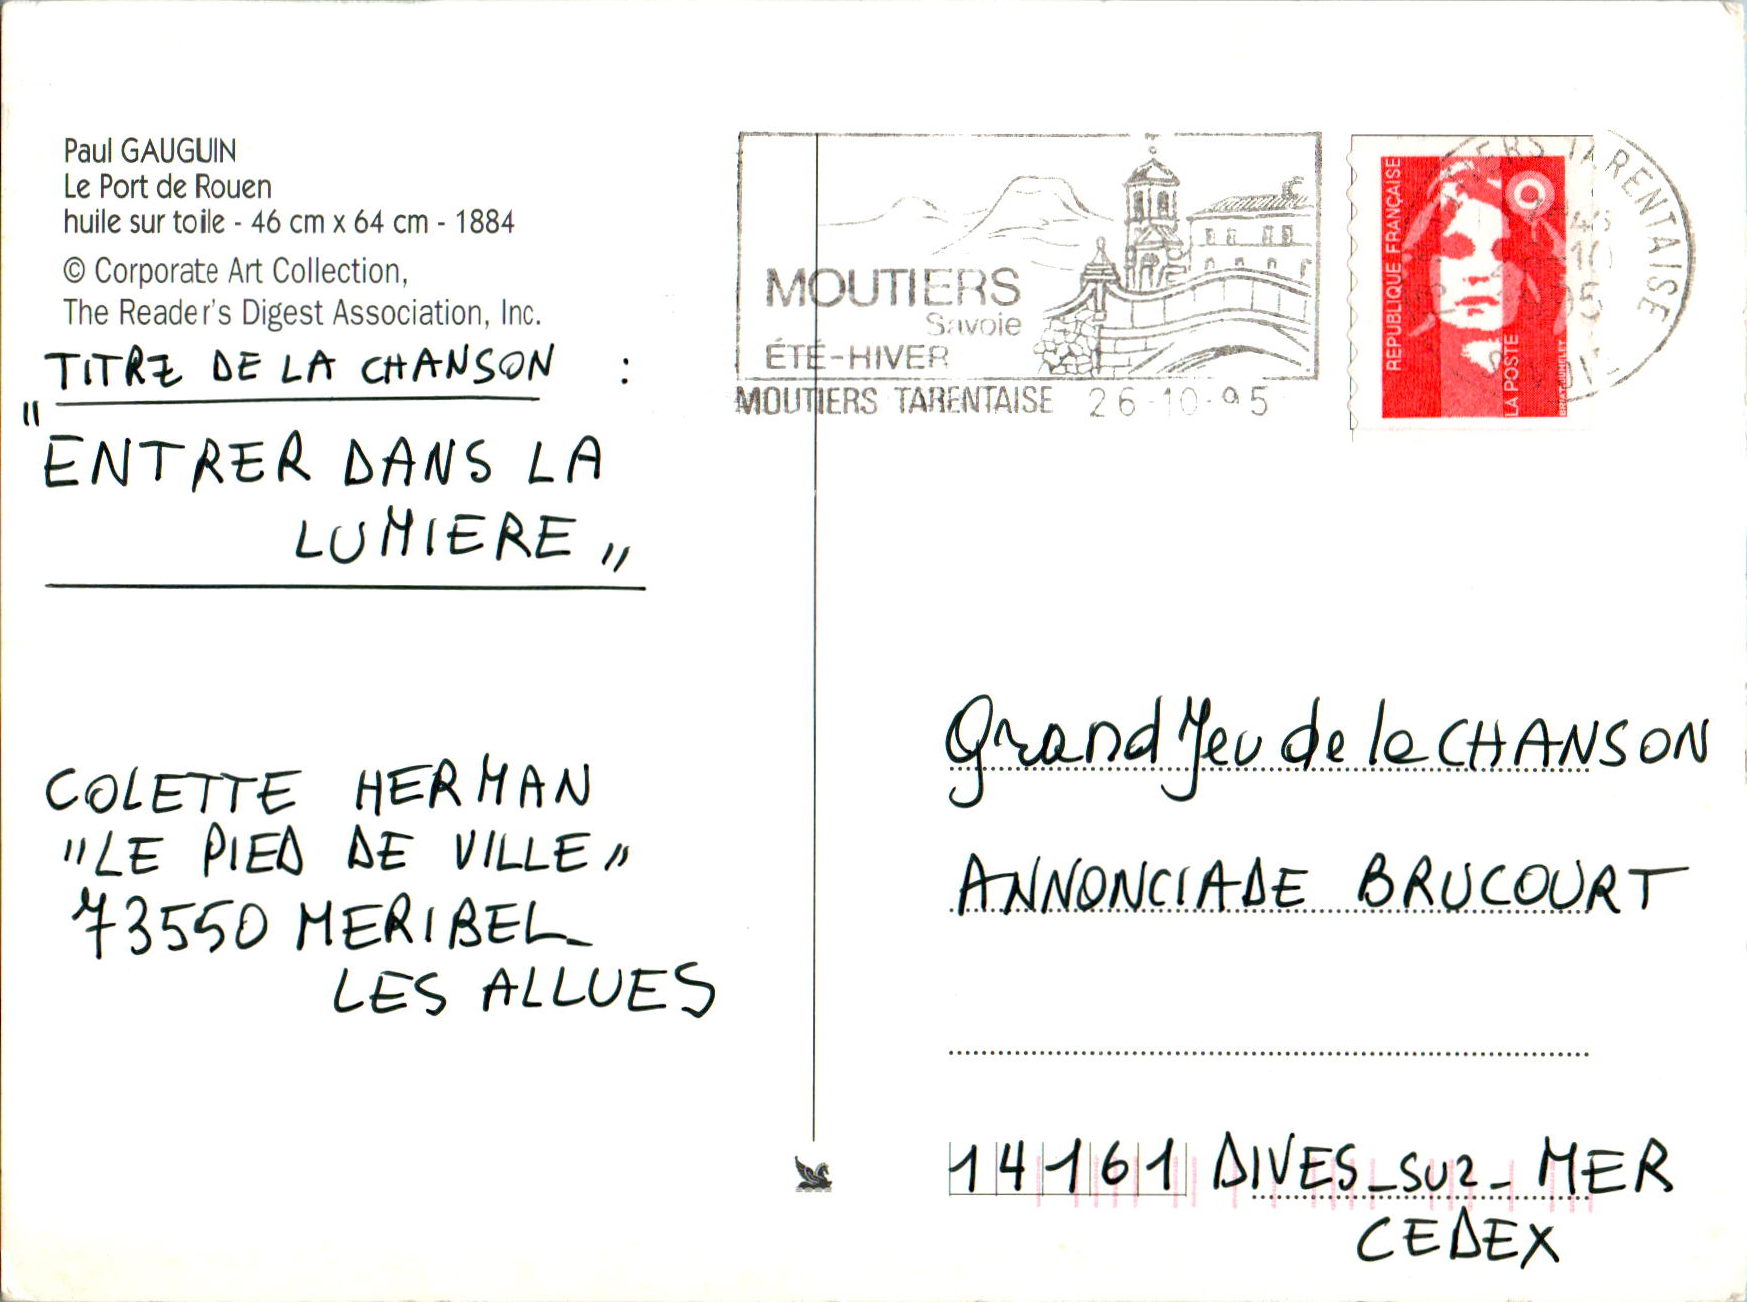 Paul GAUGUIN
Le Port de Rouen
huile sur toile - 46 cm x 64 cm - 1884
© Corporate Art Collection,
The Reader's Digest Association, Inc.
TITRE DE LA CHANSON :
"ENTRER DANS LA
LUMIERE"
COLETTE HERMAN
"LE PIED DE VILLE"
73550 MERIBEL_
LES ALLUES
MOUTIERS
Savoie
ÉTÉ-HIVER
MOUTIERS TARENTAISE 26-10-95
REPUBLIQUE FRANÇAISE
LA POSTE
TARENTAISE
Grand Jeu de la CHANSON
ANNONCIADE BRUCOURT
14161 DIVES_SUR_MER
CEDEX